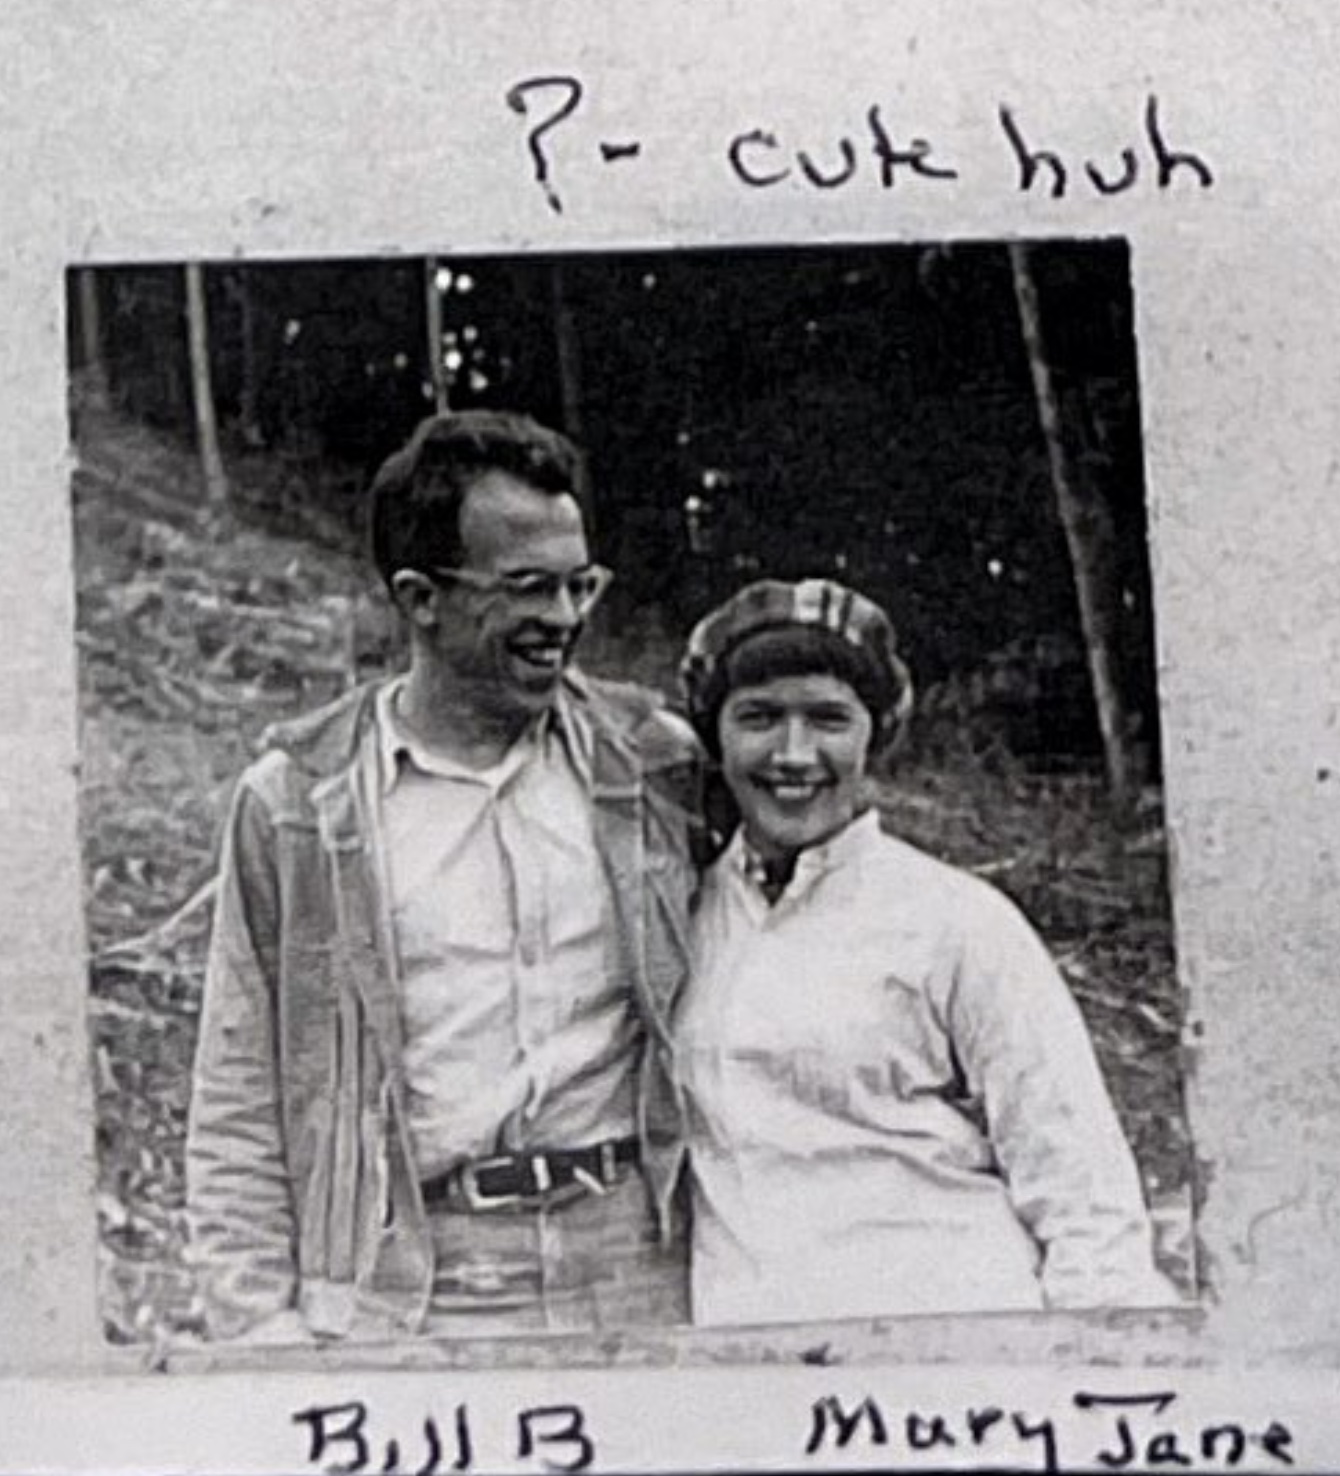 ?- cute huh
Bill B Mary Jane